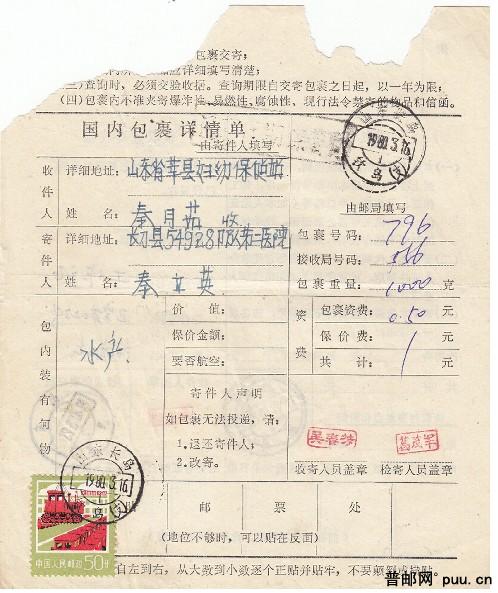 包裹交寄;
详细填写清楚;
(三)查询时,必须交验收据。查询期限自交寄包裹之日起,以一年为限;
(四)包裹内不准夹寄爆炸性、易燃性、腐蚀性、现行法令禁寄的物品和信函。
国内包裹详情单
由寄件人填写
收件人
详细地址:山东省莘县妇幼保健站
姓名:秦月茹 收
寄件人
详细地址:长岛县54928部队医院
姓名:秦立英
由邮局填写
包裹号码:796
接收局号码:
包裹重量:1000克
包内装有何物
水产
价值:
保价金额:
要否航空:
资费
包裹资费:0.50元
保价费:元
共计:1元
寄件人声明
如包裹无法投递,请:
1.退还寄件人;
2.改寄。
收寄人员盖章
检寄人员盖章
山东长岛
1980.3.16
山东长岛
1980.3.16
邮票处
(地位不够时,可以贴在反面)
自左到右,从大数到小数逐个正贴并贴牢,不要颠倒或横贴。
中国人民邮政 50分
普邮网 puu.cn